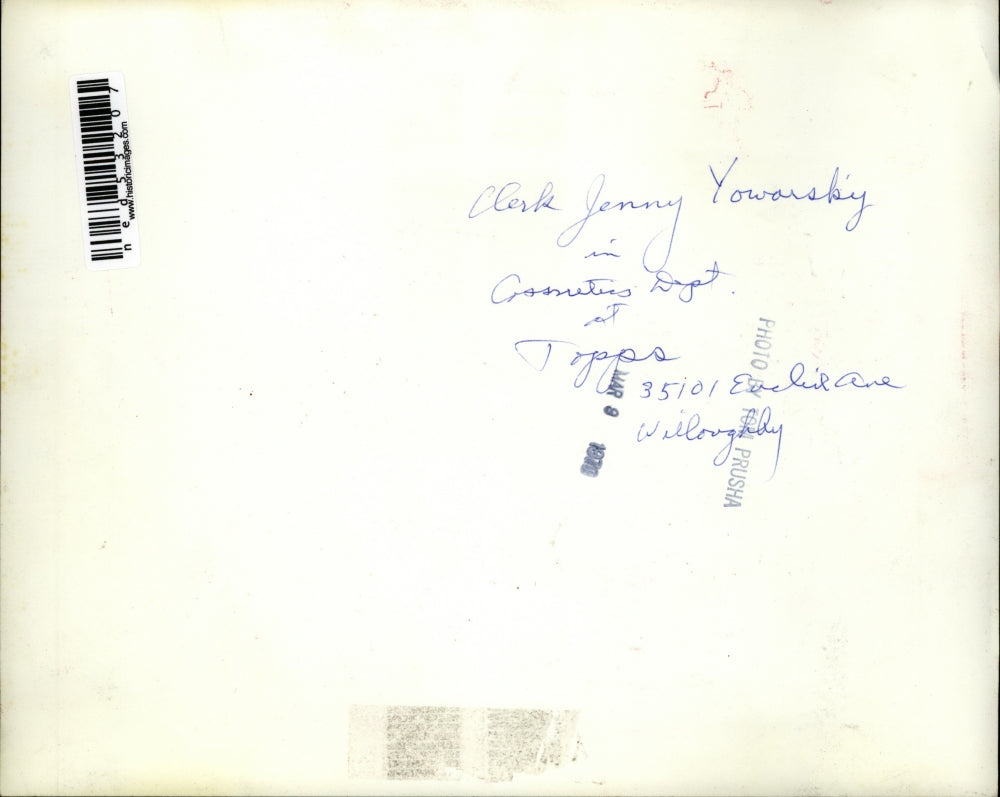 Clerk Jenny Yowarsky
in
Cosmetics Dept.
at
Topps
35101 Euclid Ave
Willoughby
MAR 9 1970
PHOTO BY TOM PRUSHA
ned53207
www.historicimages.com